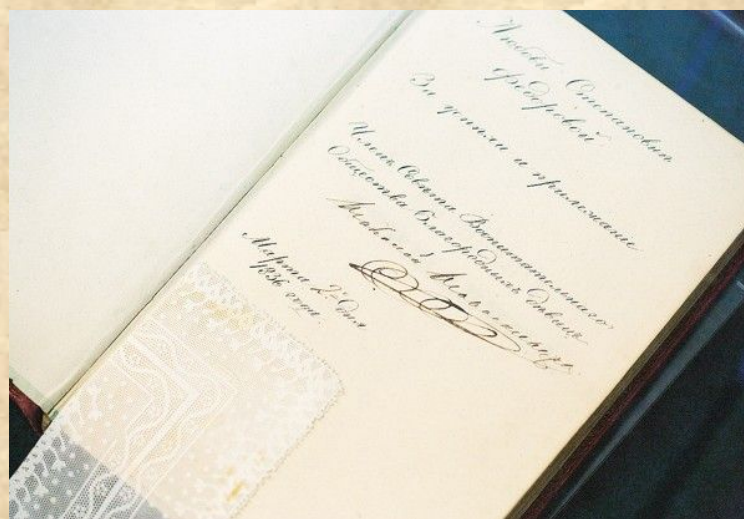 Любови Степановнѣ
Ѳедоровой
За успѣхи и прилежаніе
Членъ Совѣта Воспитательнаго
Общества Благородныхъ дѣвицъ
Марта 2 дня
1836 года.